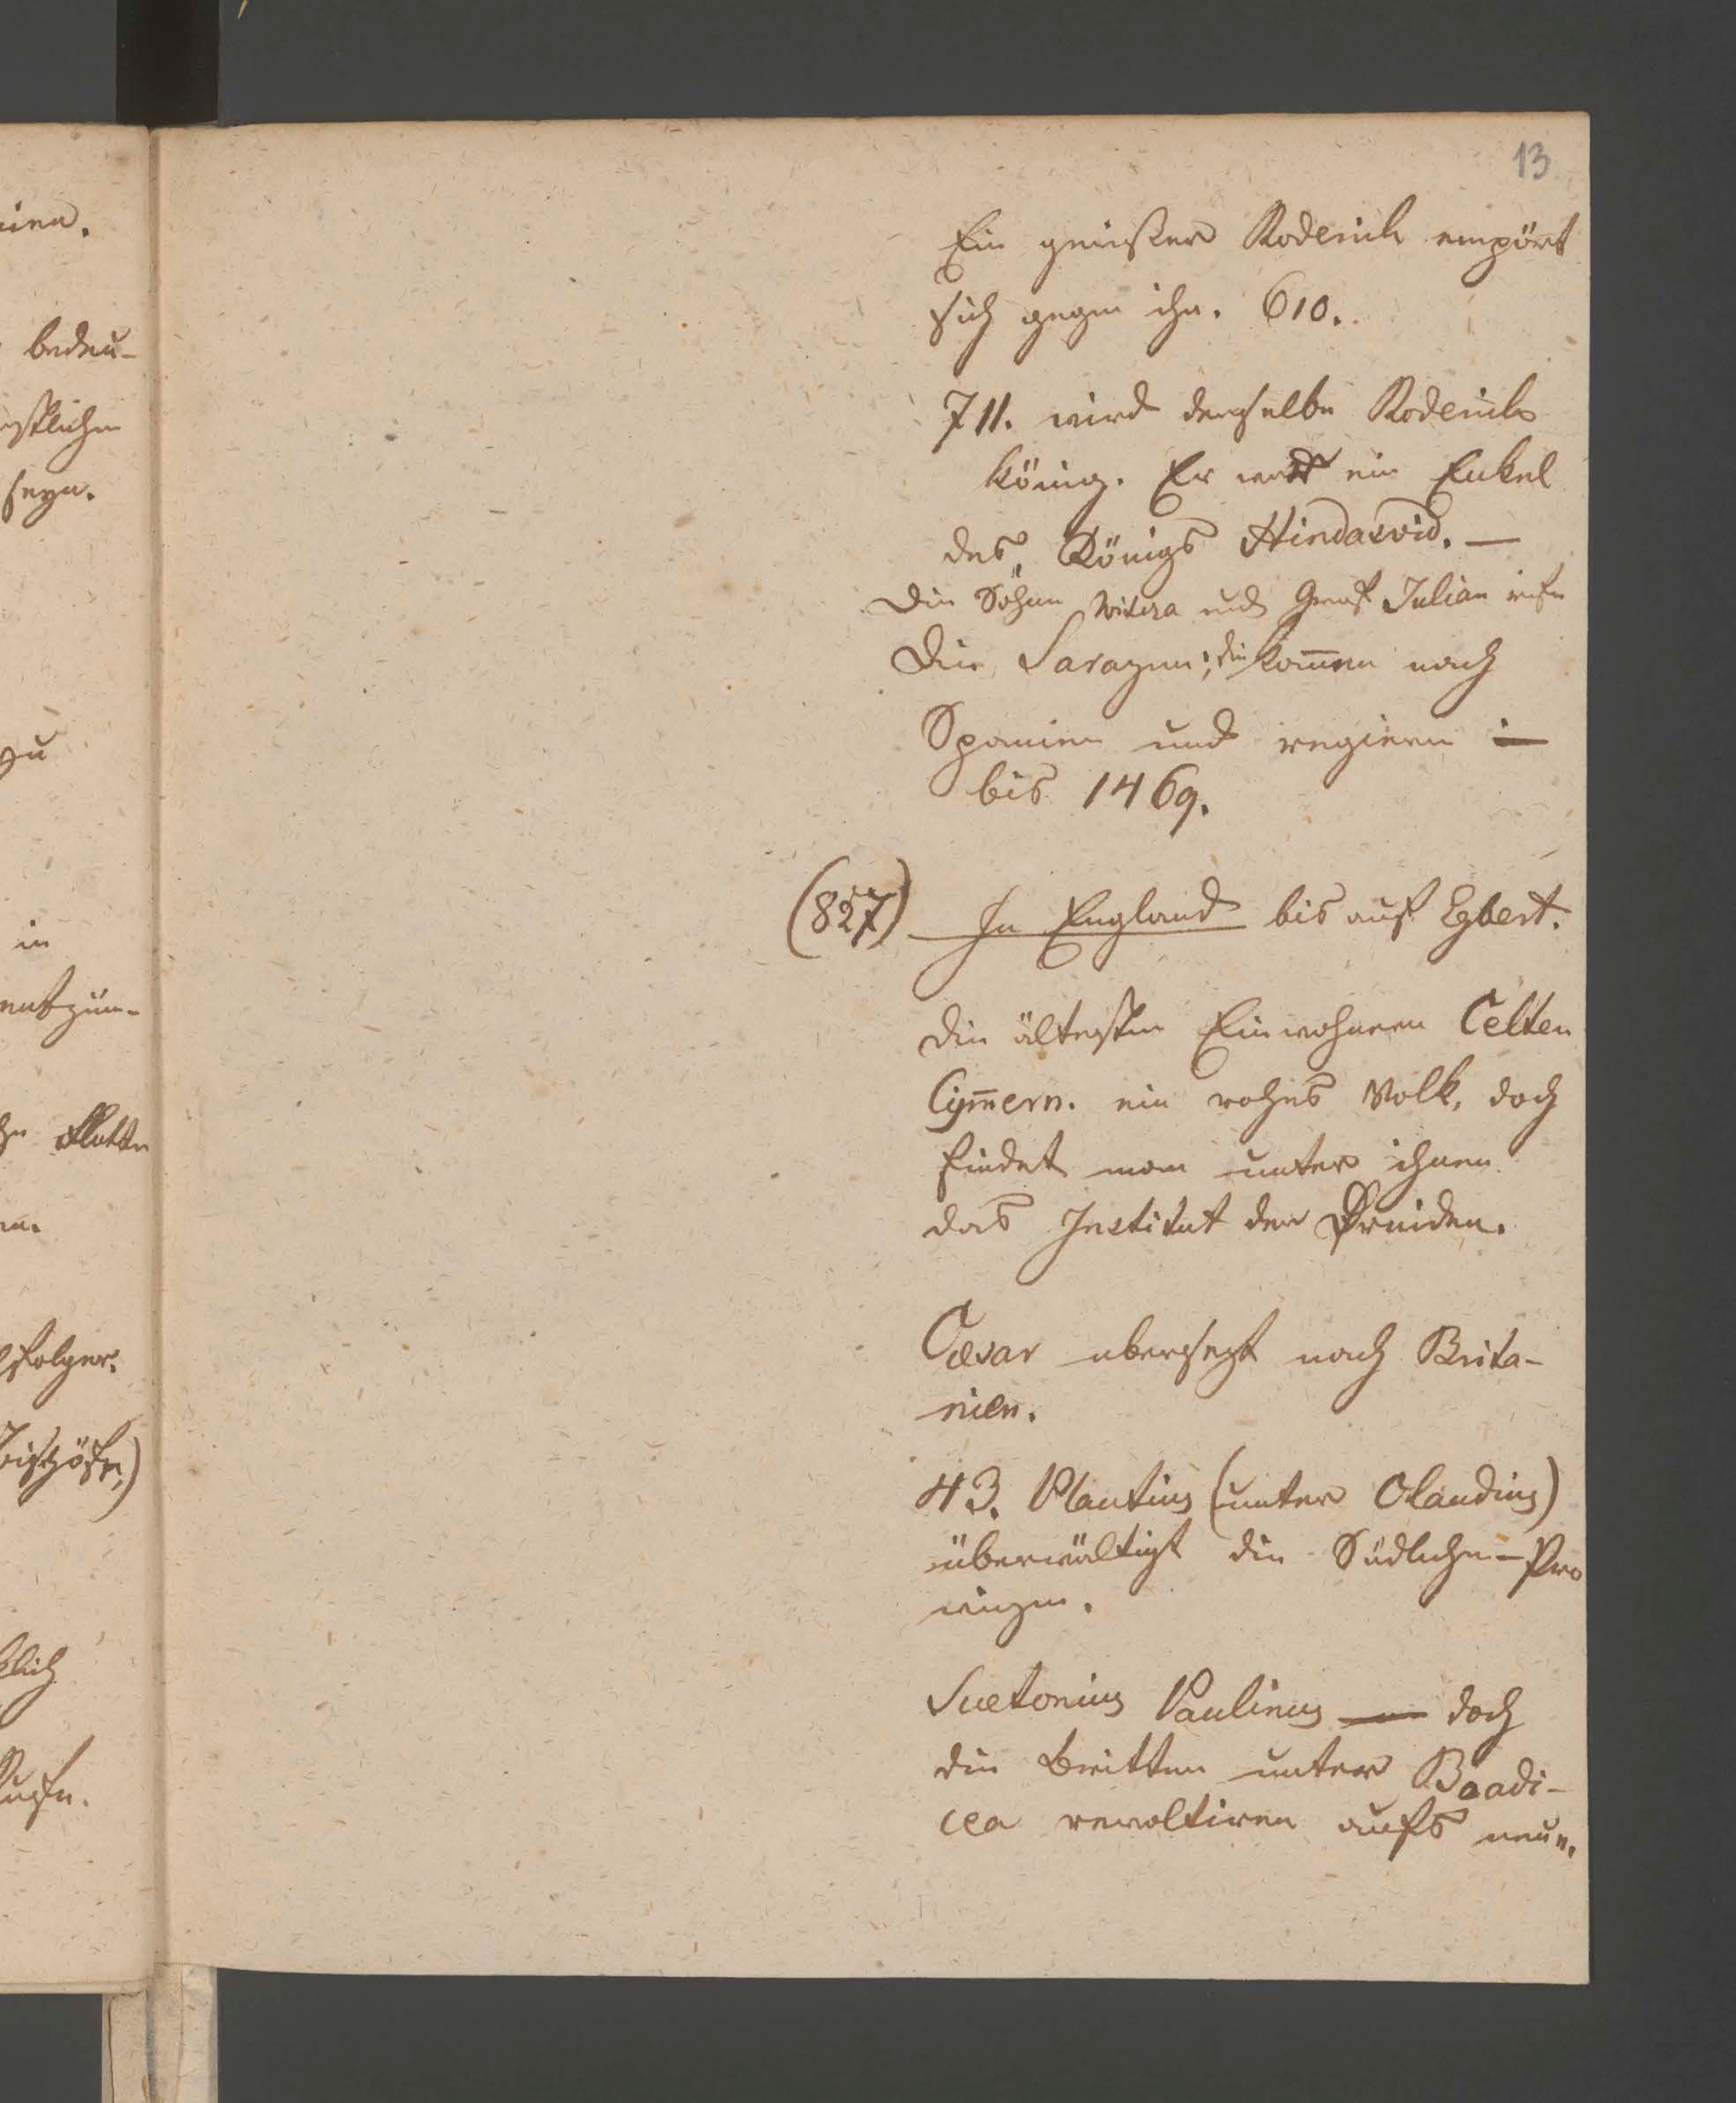 13
Ein gewißer Roderich empört
sich gegen ihn. 610.
711. wird derselbe Roderich
König. Er war ein Enkel
des Königs Hindasvid. —
Die Söhne Witiza und Graf Julian rufen
Die Sarazenen; die kom̄en nach
Spanien und regieren
bis 1469.
(827) In England bis auf Egbert.
Die ältesten Einwohner Celten
Cym̄ern. ein rohes Volk, doch
findet man unter ihnen
das Institut der Druiden.
Cæsar ubersezt nach Brita-
nien.
43. Plautius (unter Claudius)
überwältigt die Südlichen Pro
vinzen.
Suetonius Paulinus doch
die Britten unter Boadi-
cea revoltiren aufs neue.
bedeu-
seyn.
zu
in
Flotte
folger.
Bischöfe,)